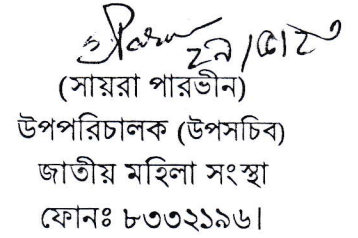 ২৯/৫/২৩
(সায়রা পারভীন)
উপপরিচালক (উপসচিব)
জাতীয় মহিলা সংস্থা
ফোনঃ ৮৩৩২১৯৬।